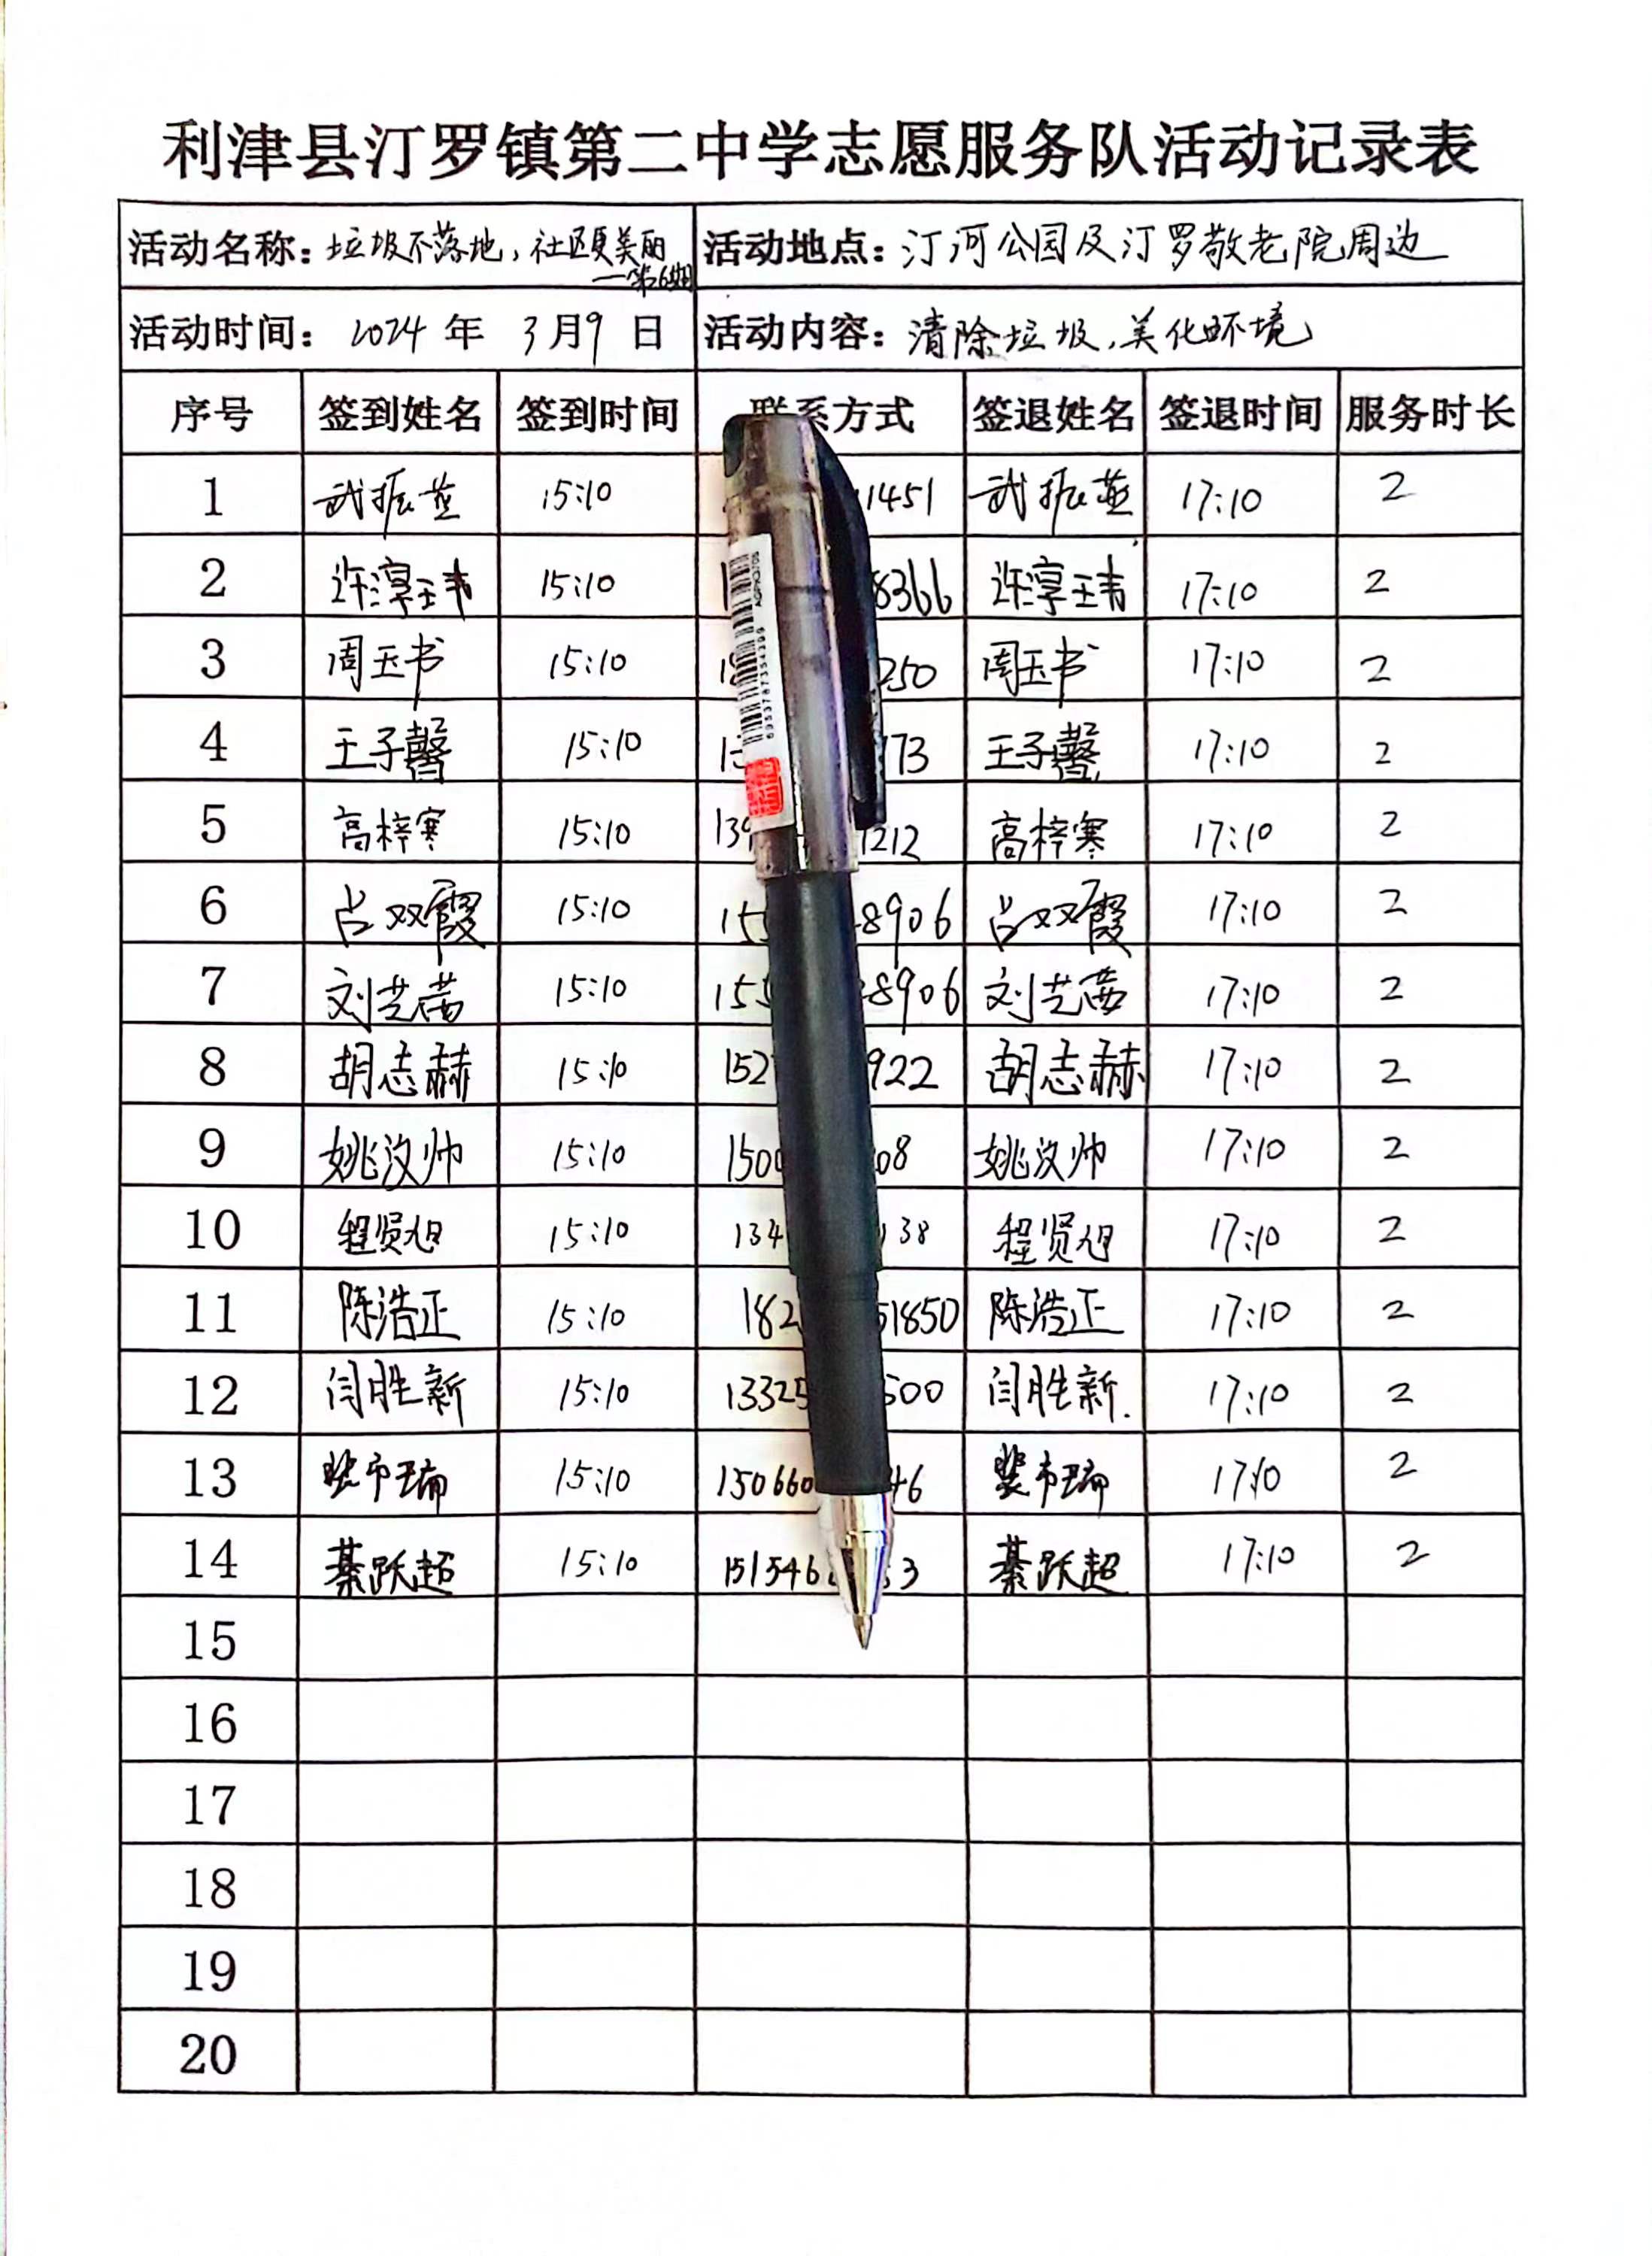 利津县汀罗镇第二中学志愿服务队活动记录表
活动名称：垃圾不落地，社区更美丽 活动地点：汀河公园及汀罗敬老院周边
—第6期
活动时间：2024 年 3月9 日 活动内容：清除垃圾，美化环境
序号 签到姓名 签到时间 联系方式 签退姓名 签退时间 服务时长
1 武振 15:10 1451 武振 17:10 2
2 许淳玮 15:10 8366 许淳玮 17:10 2
3 周玉书 15:10 250 周玉书 17:10 2
4 王子馨 15:10 173 王子馨 17:10 2
5 高梓寒 15:10 139 1212 高梓寒 17:10 2
6 吕双霞 15:10 155 8906 吕双霞 17:10 2
7 刘芝茜 15:10 155 8906 刘芝茜 17:10 2
8 胡志赫 15:10 152 922 胡志赫 17:10 2
9 姚汶帅 15:10 150 08 姚汶帅 17:10 2
10 程贤旭 15:10 134 138 程贤旭 17:10 2
11 陈浩正 15:10 182 51850 陈浩正 17:10 2
12 闫胜新 15:10 13325 500 闫胜新 17:10 2
13 15:10 150660 46 17:10 2
14 綦跃超 15:10 151546 3 綦跃超 17:10 2
15
16
17
18
19
20
AGPK3705
6953787354399